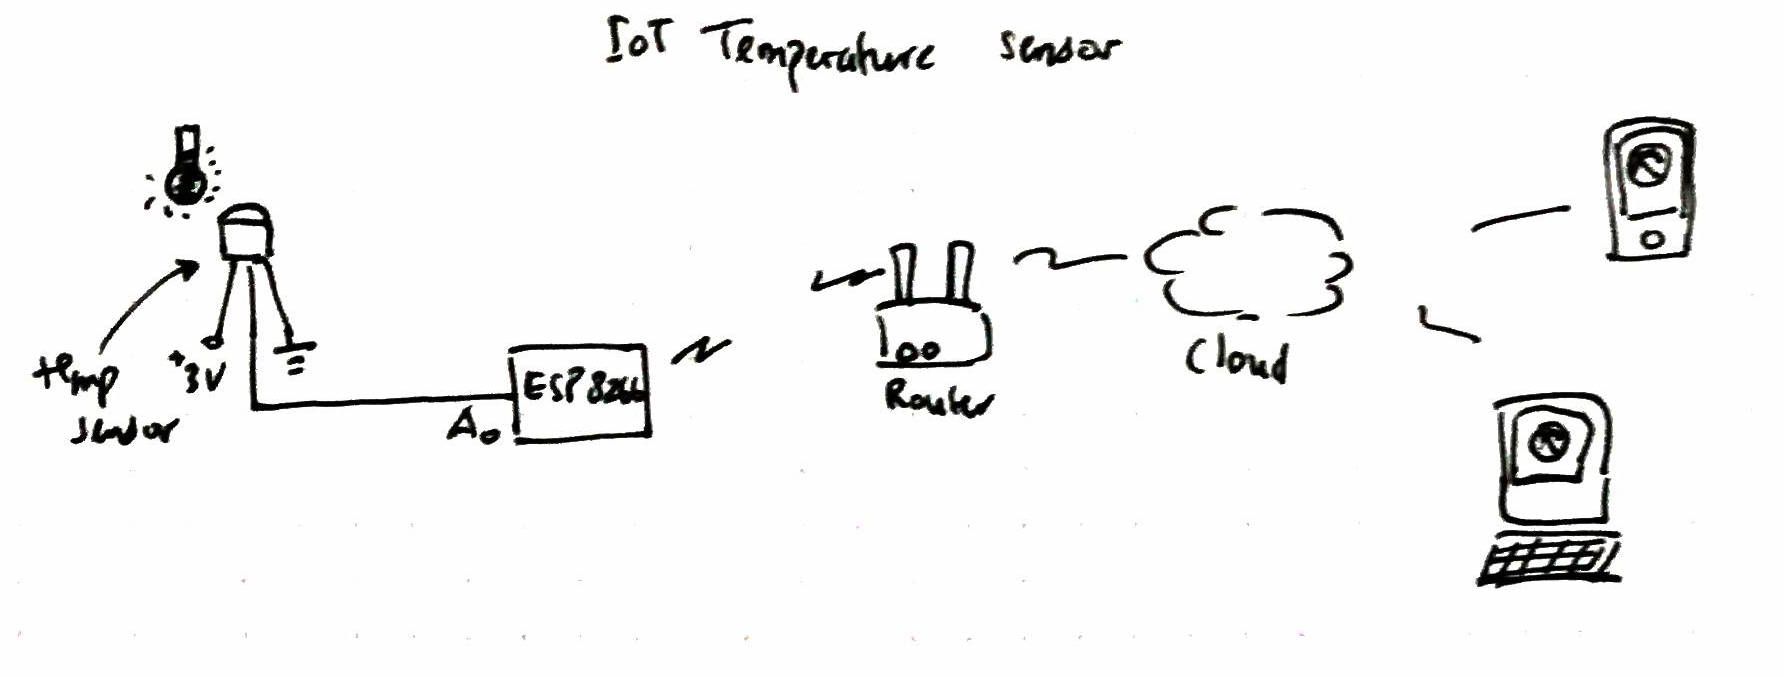 IoT Temperature sensor
temp
sensor
+3V
A0
ESP8266
Router
Cloud